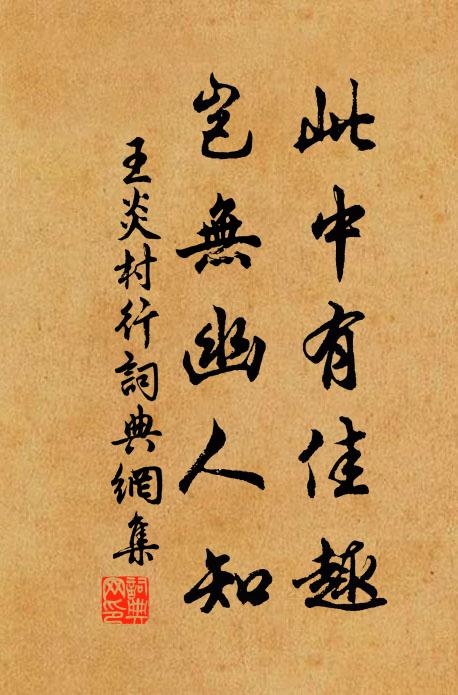 此中有佳趣
豈無幽人知
王炎村行詞典網集
詞典網印